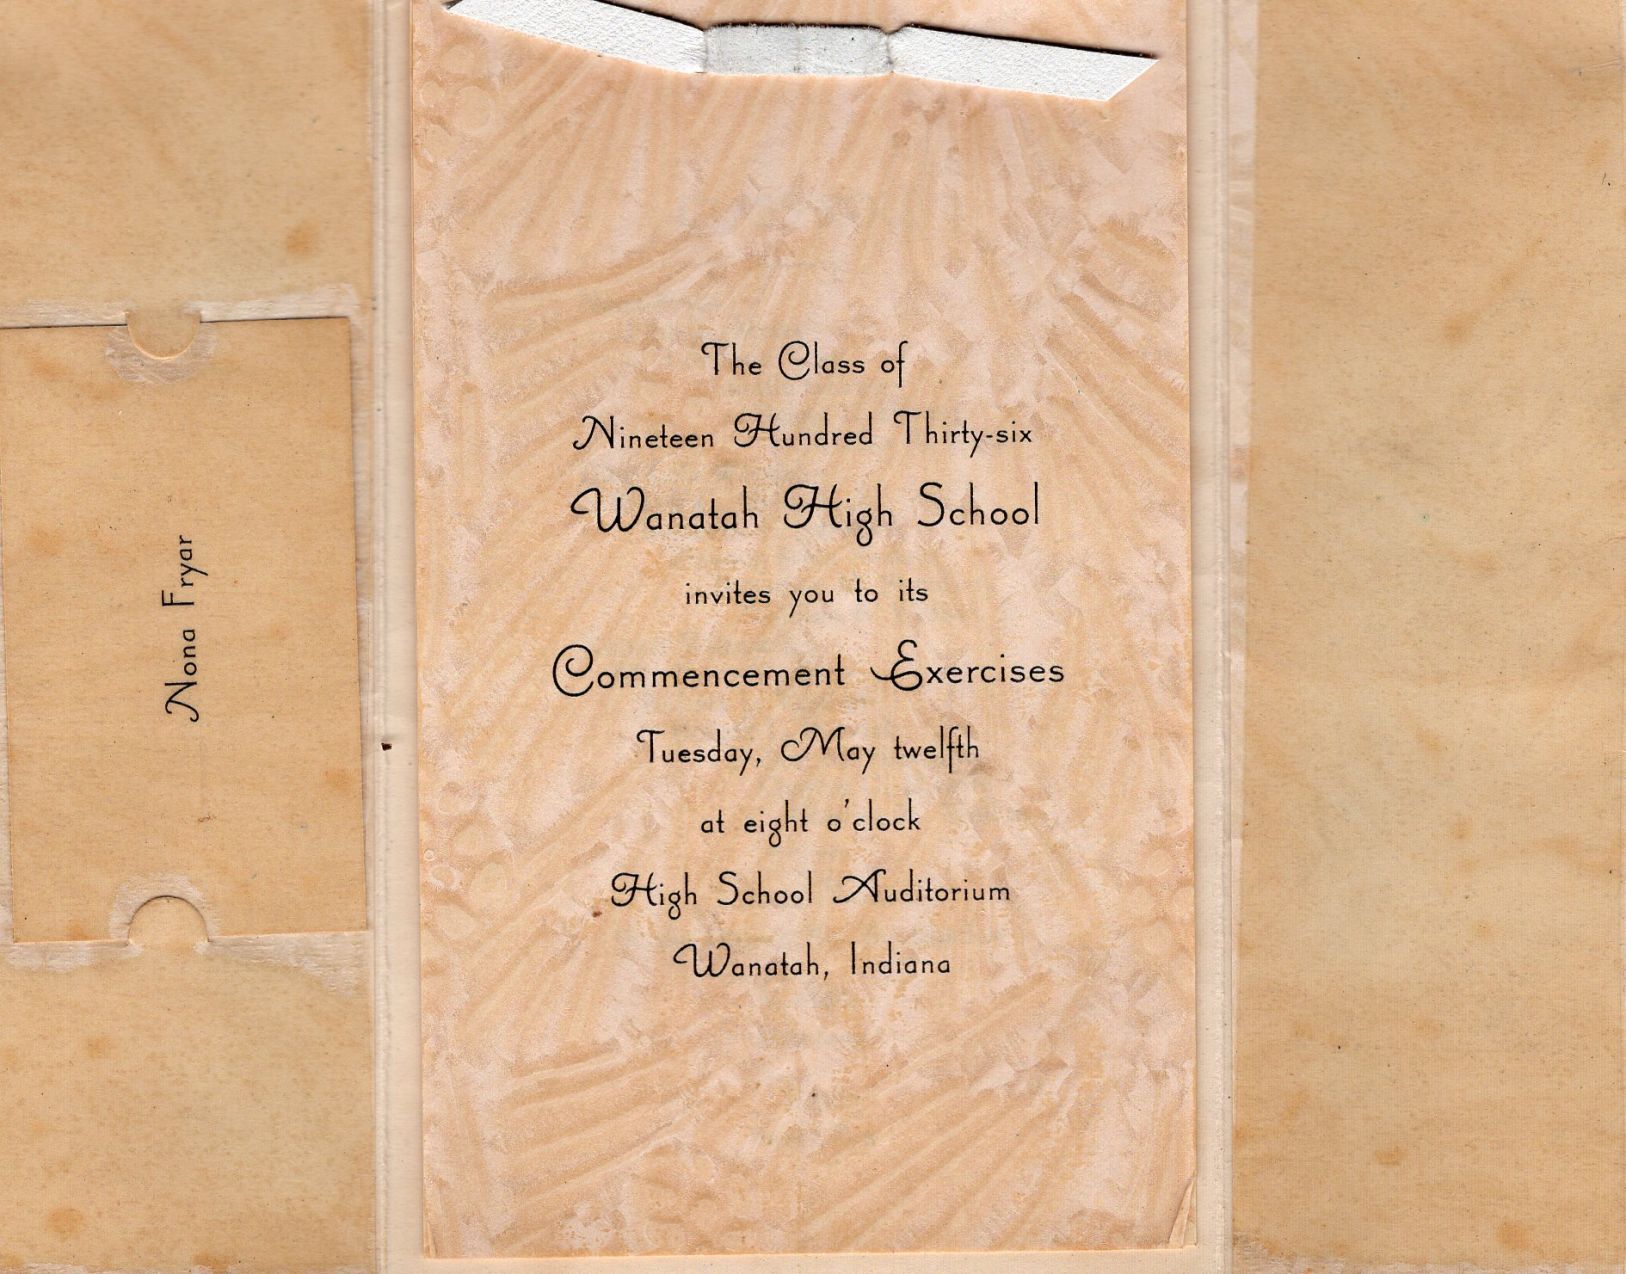 Nona Fryar
The Class of
Nineteen Hundred Thirty-six
Wanatah High School
invites you to its
Commencement Exercises
Tuesday, May twelfth
at eight o'clock
High School Auditorium
Wanatah, Indiana